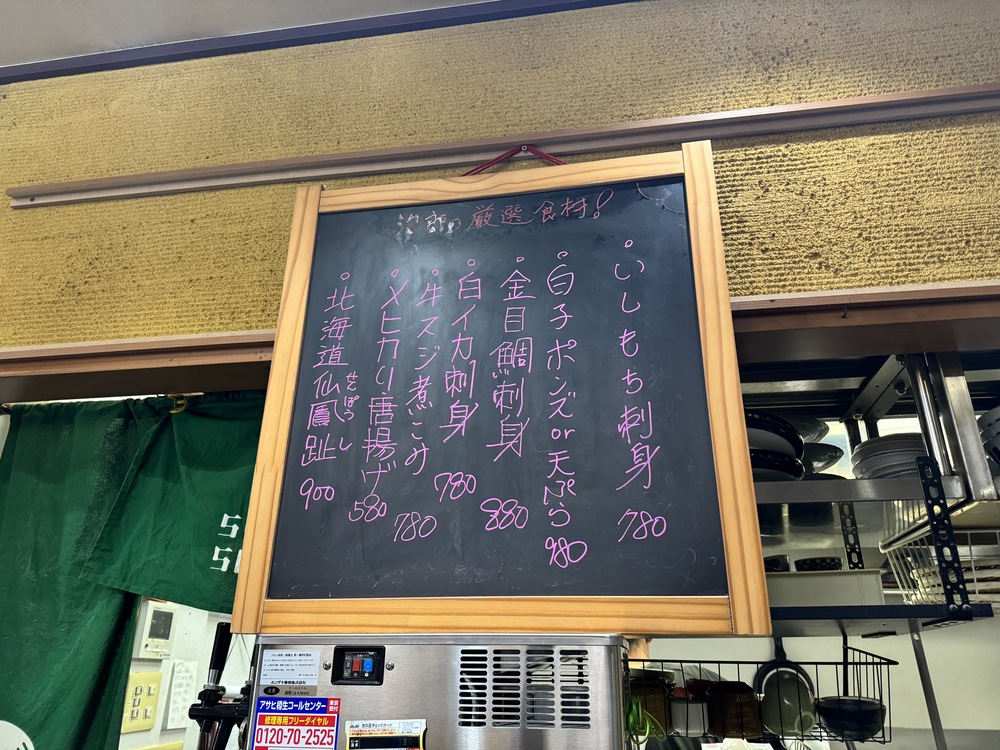 治郎の厳選食材!
○いしもち刺身 780
○白子ポンズor天ぷら 980
○金目鯛刺身 880
○白イカ刺身 780
○牛スジ煮こみ 780
○メヒカリ唐揚げ 580
○北海道仙鳳趾 900
せんぽうし
アサヒ樽生コールセンター
修理専用フリーダイヤル
0120-70-2525